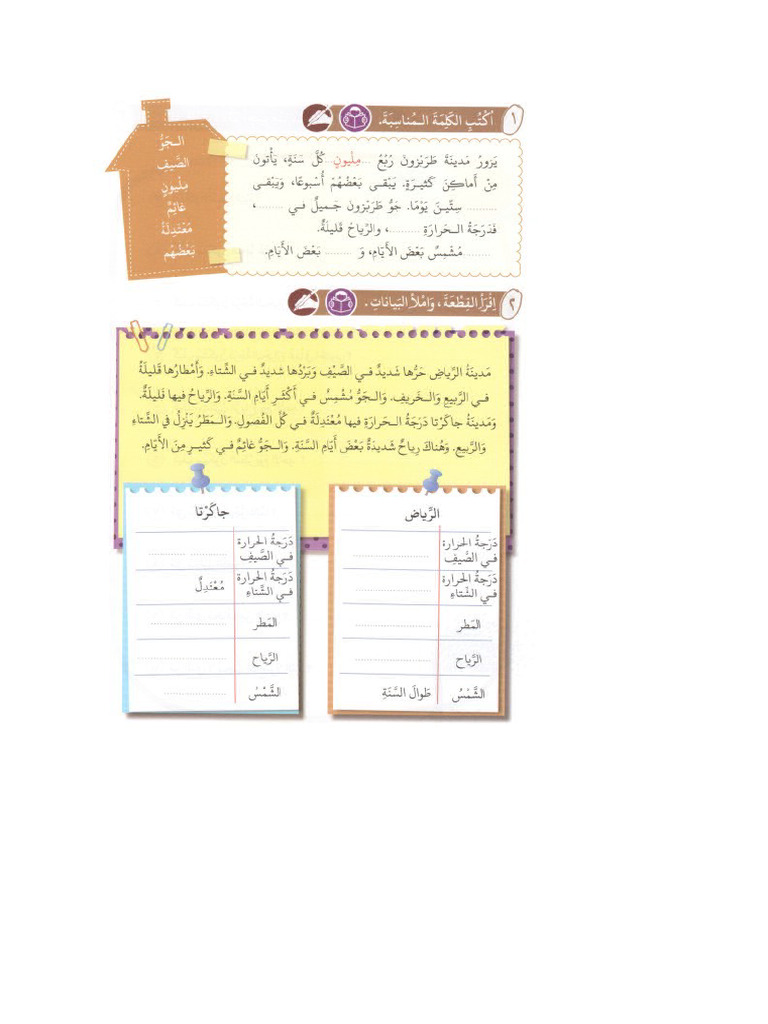 ١ اُكْتُبِ الكَلِمَةَ الـمُناسِبَةَ.
الـجَوُّ
الصَّيفِ
مِلْيونِ
غائِمٌ
مُعْتَدِلَةٌ
بَعْضُهُم
يَزورُ مَدينَةَ طَرَبْزونَ رُبْعُ ...مِلْيونِ... كُلَّ سَنَةٍ، يَأْتونَ
مِنْ أَماكِنَ كَثيـرَةٍ. يَبْقـى بَعْضُهُمْ أُسْبوعًا، وَيَبْقـى
......... سِتِّيـنَ يَوْمًا. جَوُّ طَرَبْزون جَـميلٌ فـي ......... ،
فَدَرَجَةُ الـحَرارَةِ .........، والرِّياحُ قَليلَةٌ.
......... مُشْمِسٌ بَعْضَ الأَيّامِ، وَ ......... بَعْضَ الأَيّامِ.
٢ اِقْرَأْ القِطْعَةَ، وَامْلأْ البَيانات.
مَدينَةُ الرِّياضِ حَرُّها شَديدٌ فـي الصَّيْفِ وَبَرْدُها شَديد فـي الشِّتاءِ. وَأَمْطارُها قَليلَةٌ
فـي الرَّبيعِ وَالـخَريفِ. وَالـجَوُّ مُشْمِسٌ في أَكْثَـرِ أَيّامِ السَّنَةِ. وَالرِّياحُ فيها قَليلَةٌ.
وَمَدينَةُ جاكَرْتا دَرَجَةُ الـحَرارَةِ فيها مُعْتَدِلَةٌ في كُلِّ الفُصولِ. وَالـمَطَرُ يَنْزِلُ في الشِّتاءِ
وَالرَّبيعِ. وَهُناكَ رِياحٌ شَديدَةٌ بَعْضَ أَيّامِ السَّنَةِ. وَالـجَوُّ غائِمٌ فـي كَثيـرٍ مِنَ الأَيّامِ.
الرِّياض
دَرَجَةُ الحرارة
فـي الصَّيفِ
دَرَجَةُ الحرارة
فـي الشِّتاءِ
المَطَر
الرِّياح
الشَّمْسُ طَوالَ السَّنَةِ
جاكَرْتا
دَرَجَةُ الحرارة
فـي الصَّيفِ
دَرَجَةُ الحرارة مُعْتَدِلٌ
فـي الشِّتاءِ
المَطَر
الرِّياح
الشَّمْسُ